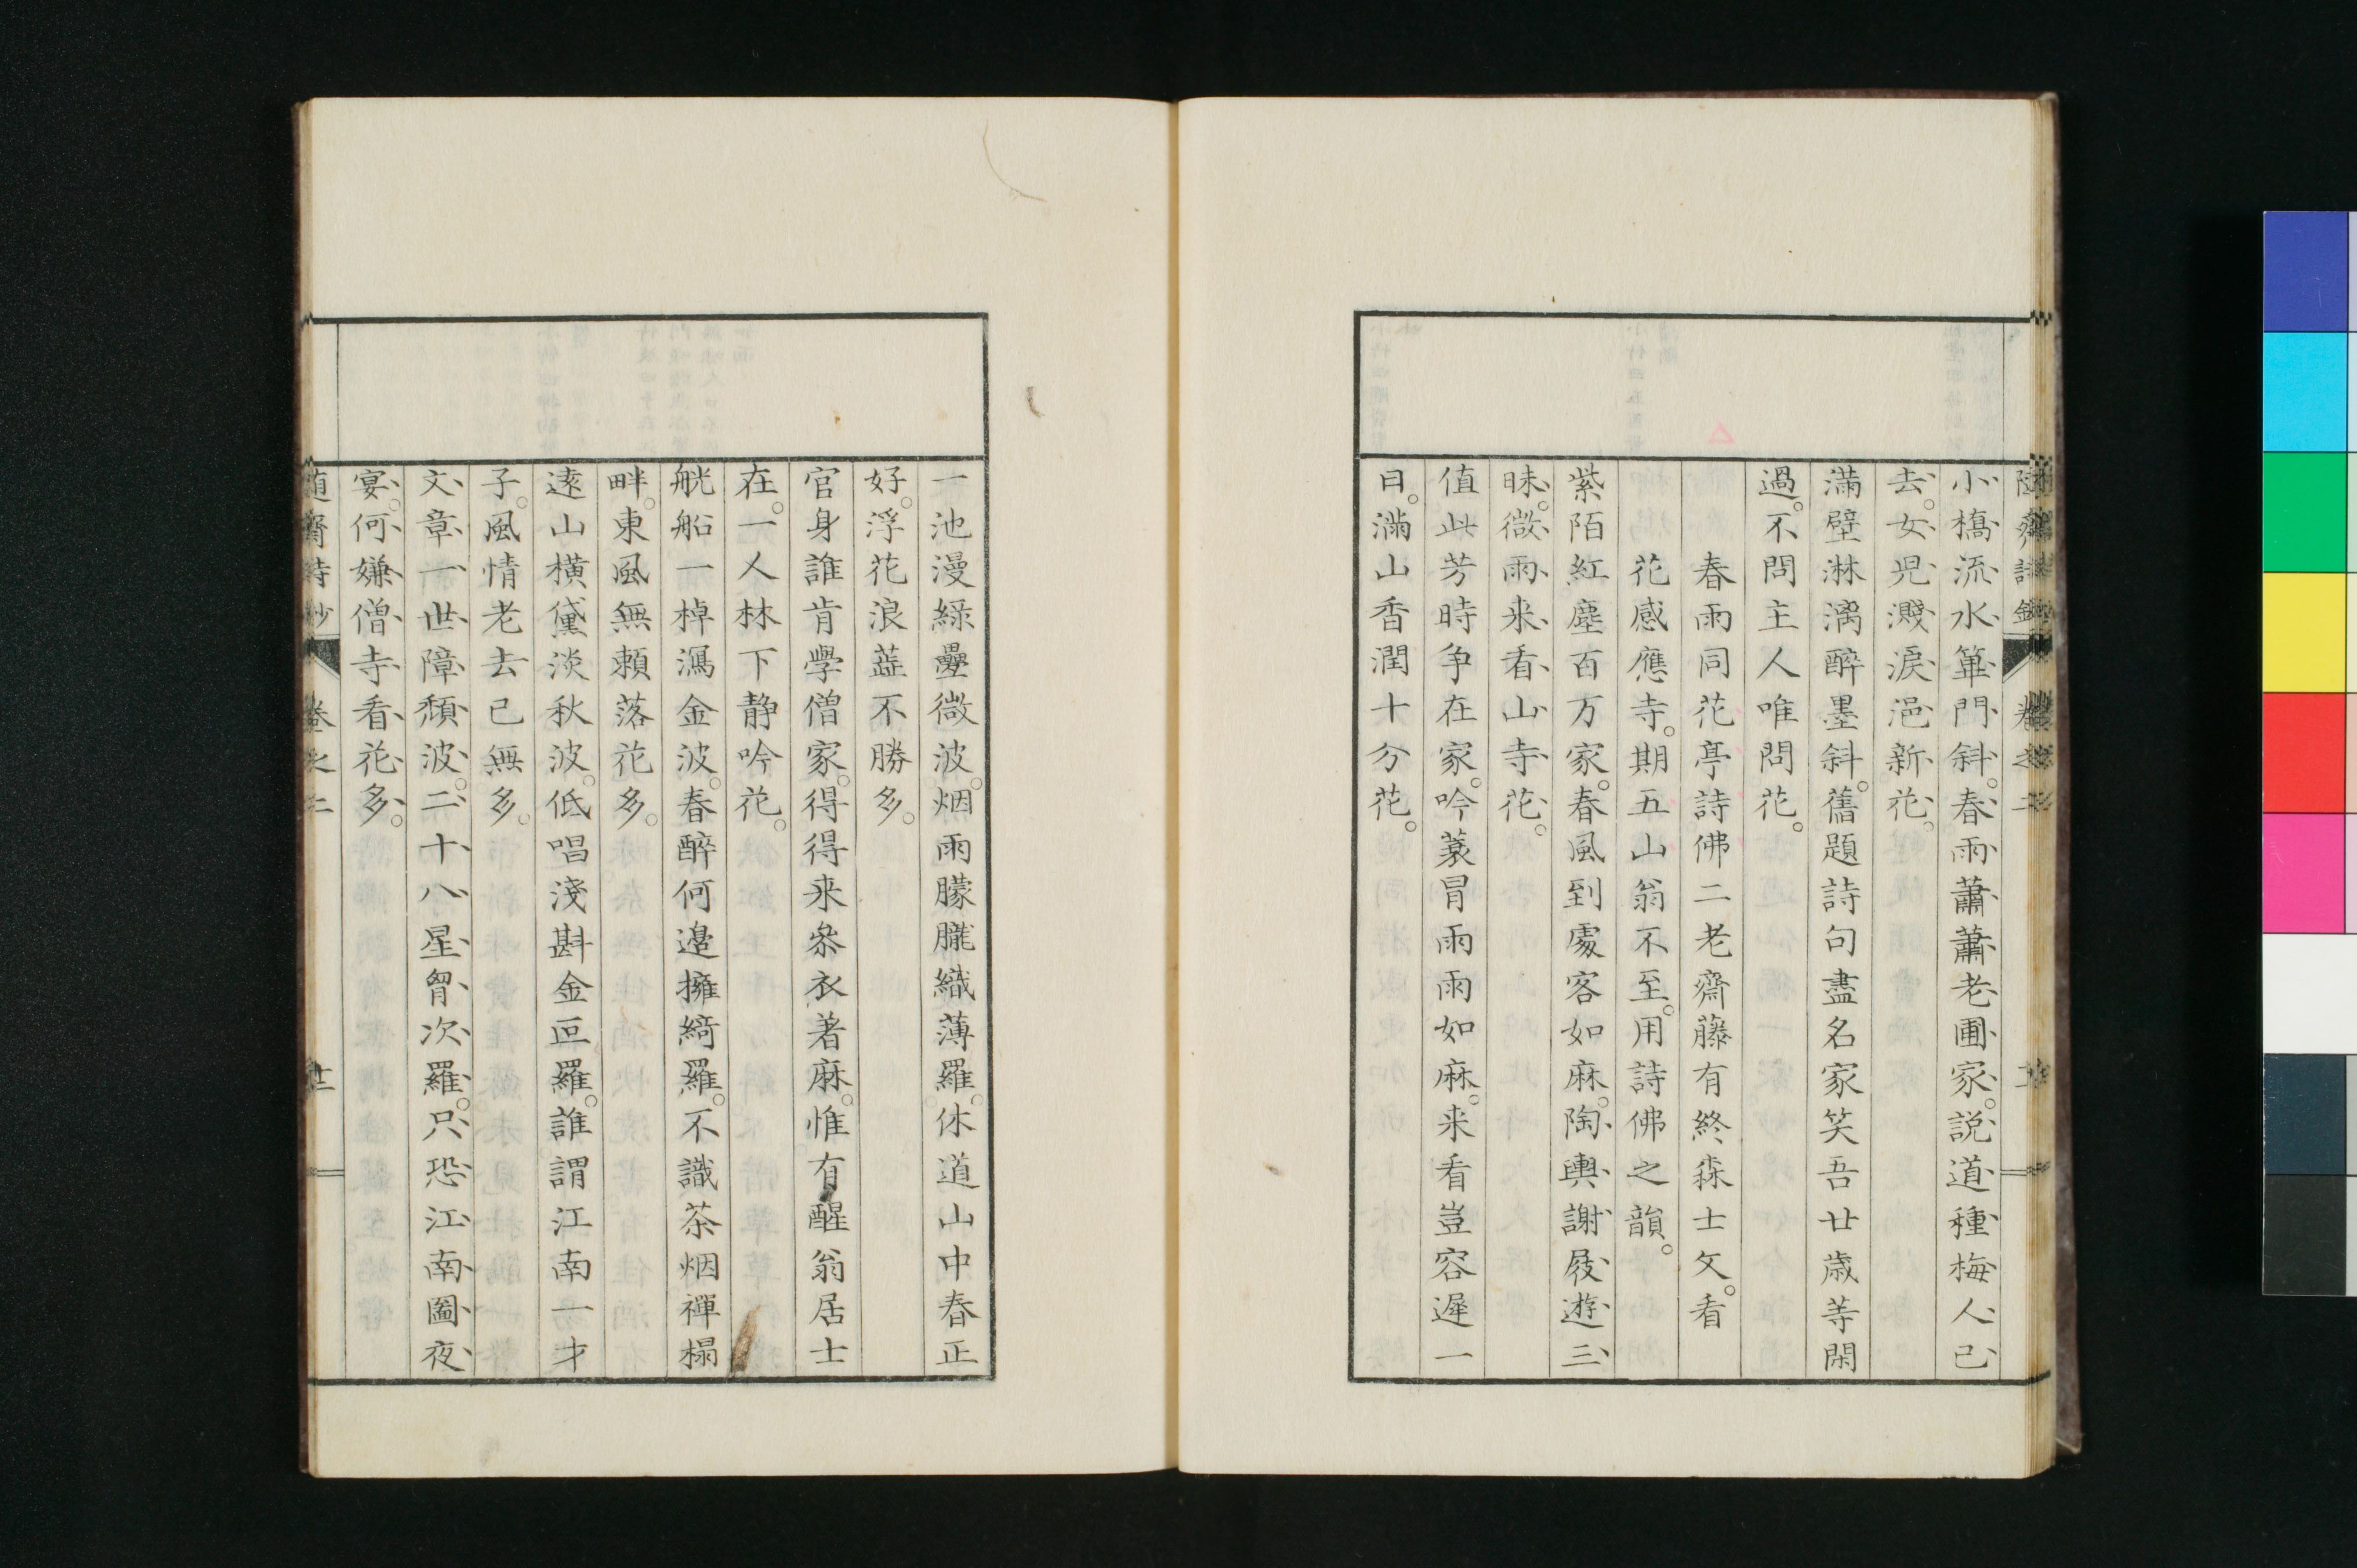 小橋流水篳門斜。春雨蕭蕭老圃家。説道種梅人已
去。女児濺涙浥新花。
滿壁淋漓醉墨斜。舊題詩句盡名家笑吾廿歳等閑
過。不問主人唯問花。
春雨同花亭詩佛二老齋藤有終森士文。看
花感應寺。期五山翁不至。用詩佛之韻。
紫陌紅塵百万家。春風到處客如麻。陶輿謝屐遊三
昧。微雨来看山寺花。
值此芳時争在家。吟蓑冒雨雨如麻。来看豈容遲一
日。滿山香潤十分花。
一池漫緑疊微波。烟雨朦朧織薄羅。休道山中春正
好。浮花浪蘂不勝多。
官身誰肯學僧家。得得来叅衣著麻。惟有醒翁居士
在。一人林下静吟花。
觥船一棹瀉金波。春醉何邊擁綺羅。不識茶烟禪榻
畔。東風無頼落花多。
遠山横黛淡秋波。低唱淺斟金叵羅。誰謂江南一才
子。風情老去已無多。
文章一世障頽波。二十八星胷次羅。只恐江南圖夜
宴。何嫌僧寺看花多。
随齋詩鈔 卷之二